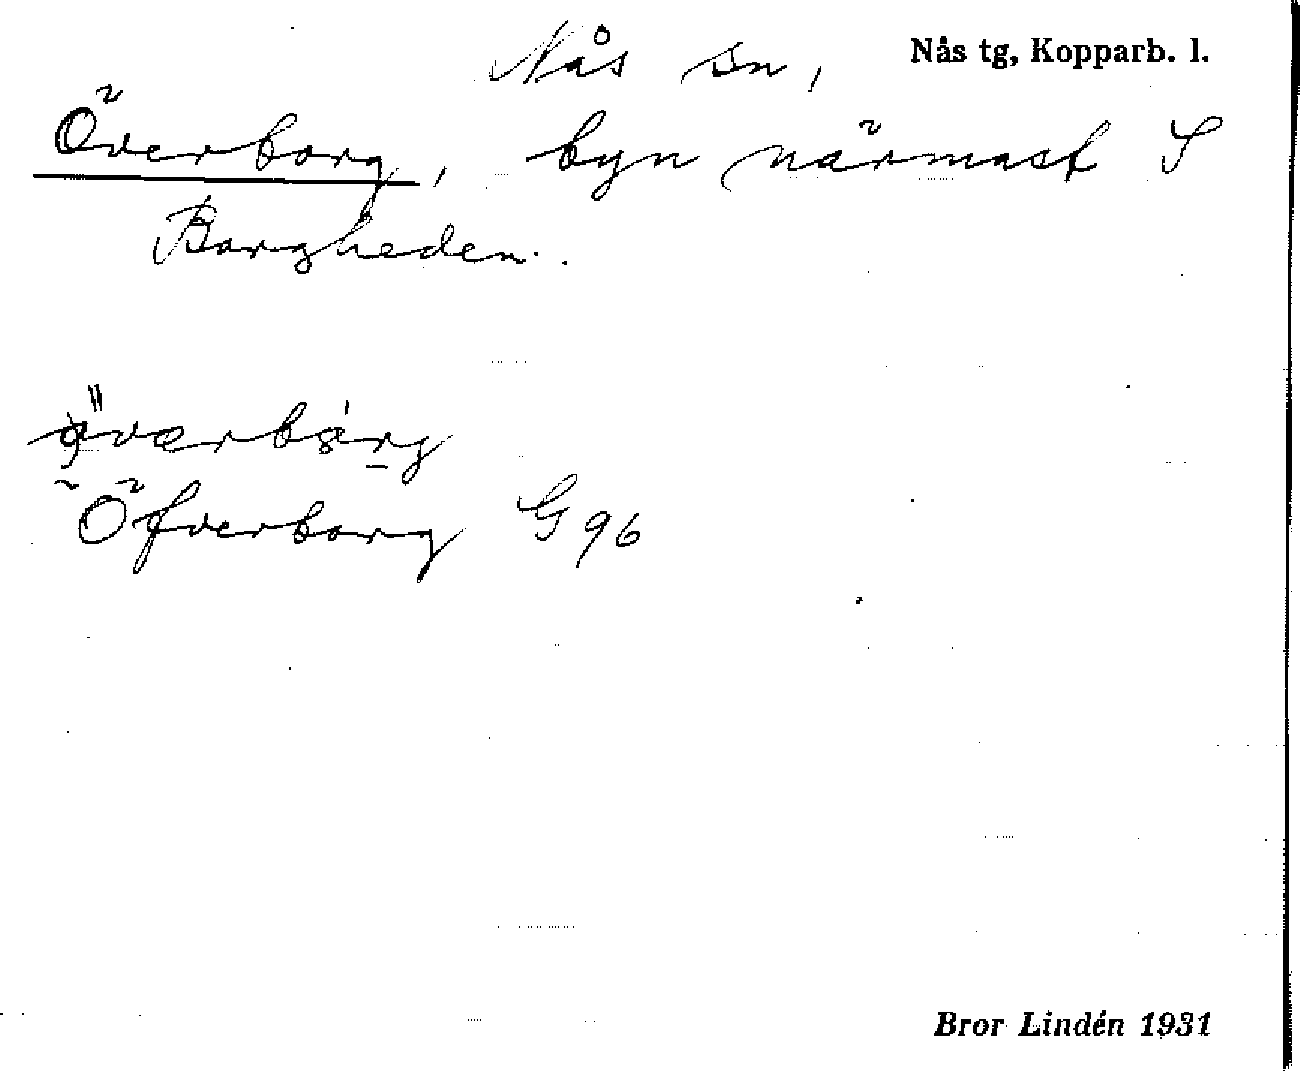 Nås sn, Nås tg, Kopparb. l.
Överborg, byn närmast S
Borgheden.
Öfverborg G 96
Bror Lindén 1931